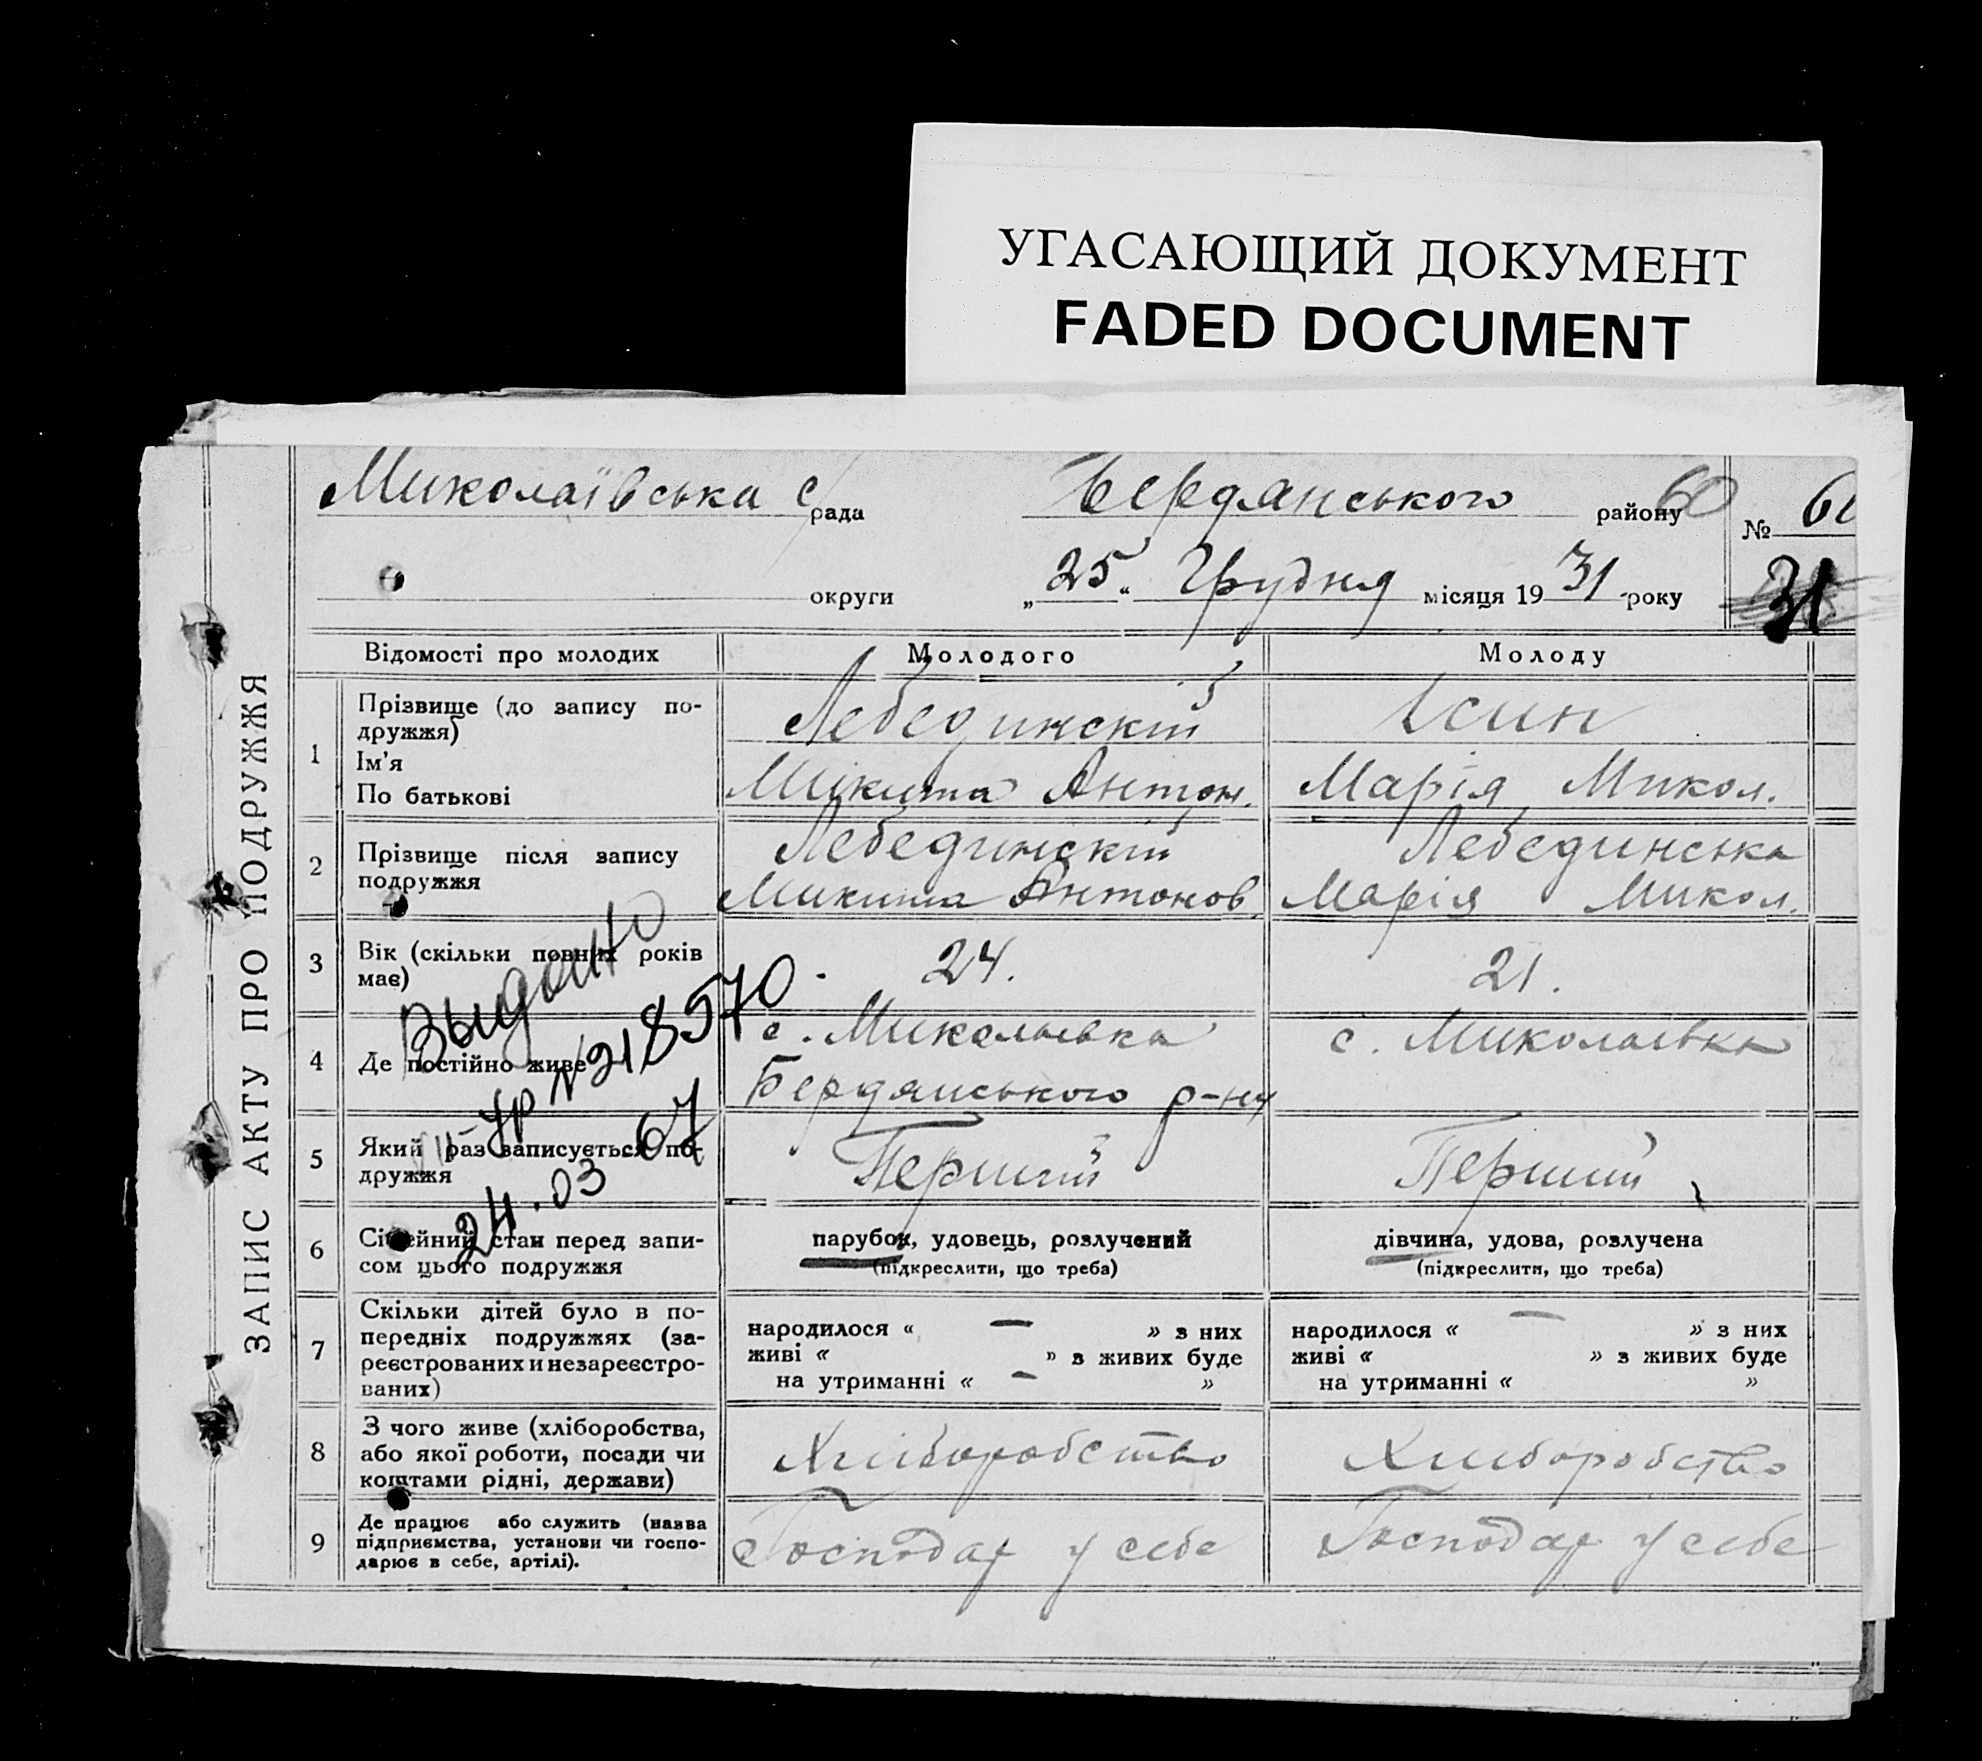 УГАСАЮЩИЙ ДОКУМЕНТ
FADED DOCUMENT
ЗАПИС АКТУ ПРО ПОДРУЖЖЯ
Миколаївська с/рада Бердянського району 60 № 60
округи „25“ Грудня місяця 1931 року 31
Відомості про молодих Молодого Молоду
1 Прізвище (до запису по-
дружжя)
Лебединскій Ісин
Ім'я
По батькові
Микита Антон. Марія Микол.
2 Прізвище після запису
подружжя
Лебединскій Лебединська
Микита Антонов. Марія Микол.
3 Вік (скільки повних років
має)
24. 21.
4 Де постійно живе
с. Миколаівка с. Миколаівка
Бердянського р-ну
5 Який раз записується по-
дружжя
Перший Перший
6 Сімейний стан перед запи-
сом цього подружжя
парубок, удовець, розлучений
(підкреслити, що треба)
дівчина, удова, розлучена
(підкреслити, що треба)
7 Скільки дітей було в по-
передніх подружжях (за-
реєстрованих и незареєстро-
ваних)
народилося « — » з них
живі « » з живих буде
на утриманні « - »
народилося « — » з них
живі « » з живих буде
на утриманні « »
8 З чого живе (хліборобства,
або якої роботи, посади чи
коштами рідні, держави)
Хліборобство Хліборобство
9 Де працює або служить (назва
підприємства, установи чи госпо-
дарює в себе, артілі).
Господар у себе Господар у себе
Выдано
УР №218570
24.03 67